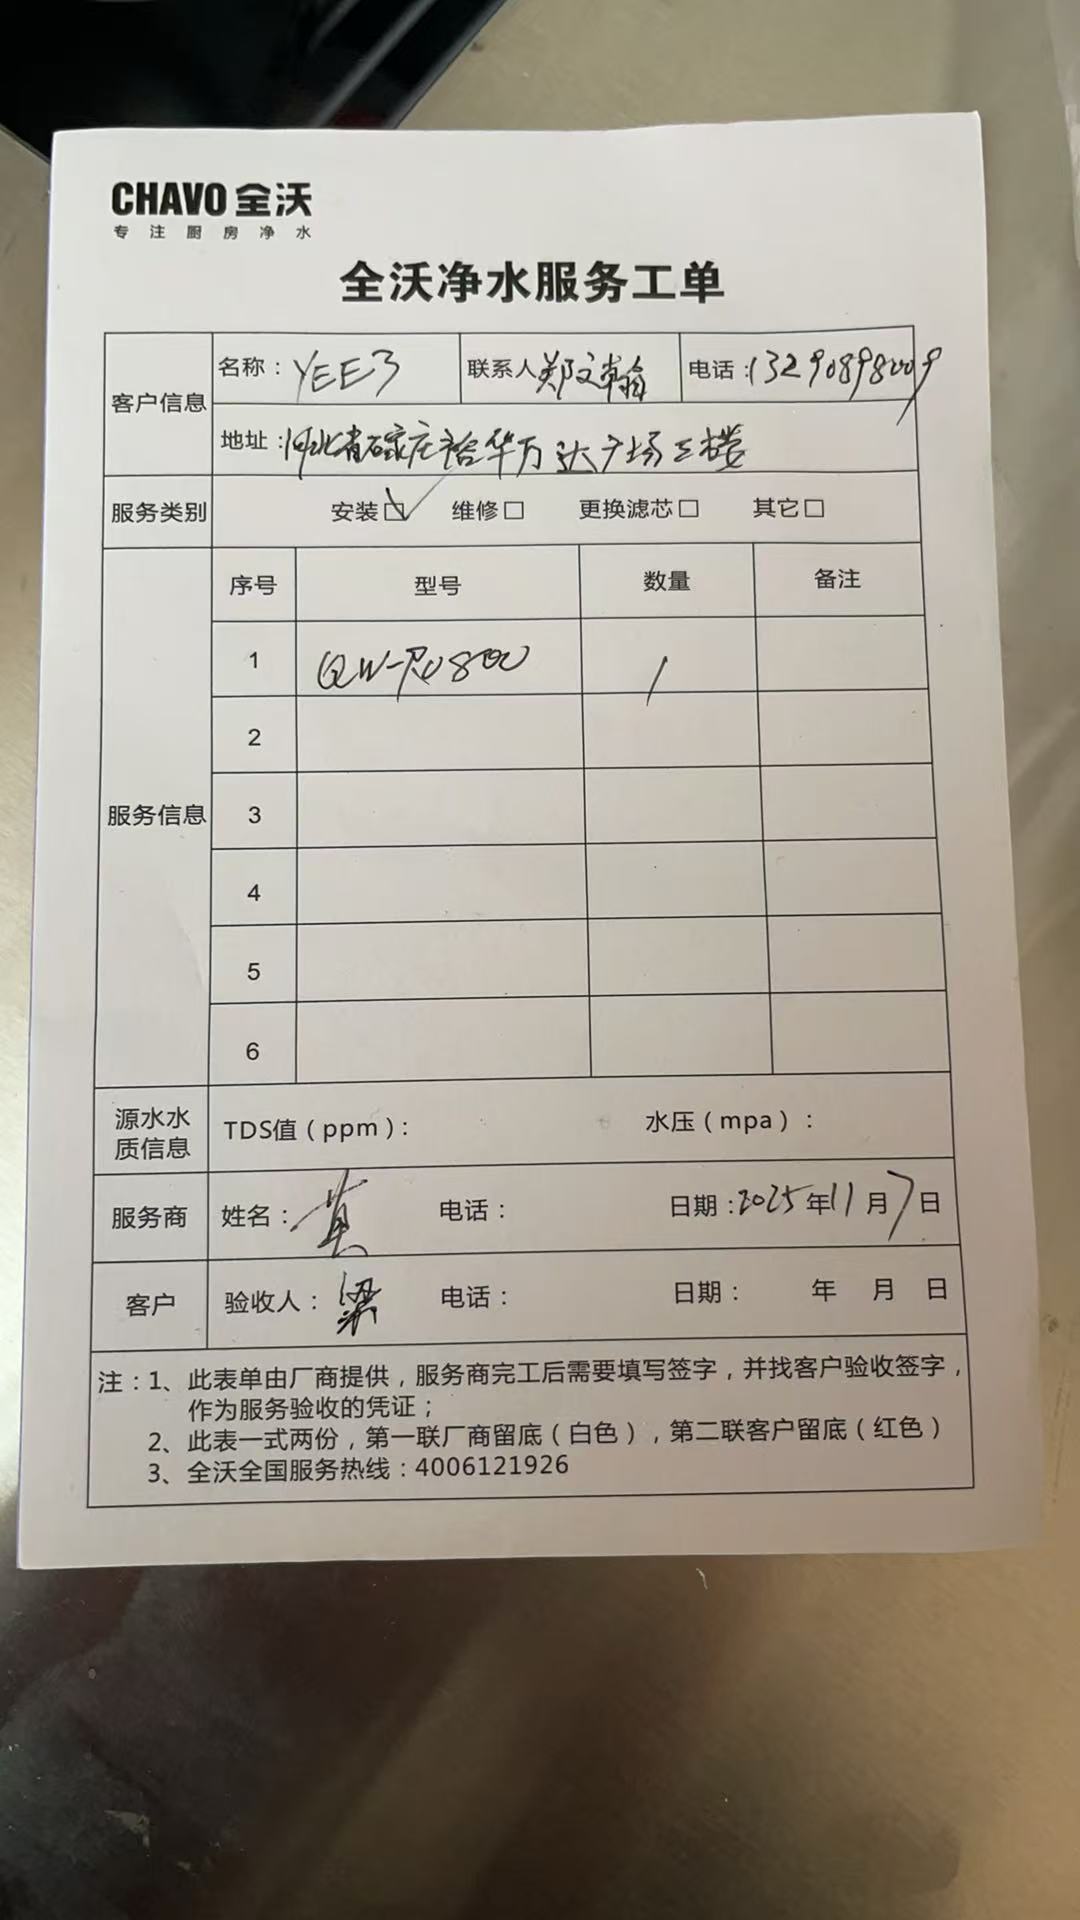 CHAVO 全沃
专注厨房净水
全沃净水服务工单
客户信息
名称：YEE3 联系人 郑文翰 电话：13290898009
地址：河北省石家庄裕华万达广场三楼
服务类别 安装☑ 维修□ 更换滤芯□ 其它□
服务信息
序号 型号 数量 备注
1 QW-RO800 1
2
3
4
5
6
源水水质信息 TDS值（ppm）： 水压（mpa）：
服务商 姓名：黄 电话： 日期：2025年11月7日
客户 验收人：梁 电话： 日期： 年 月 日
注：1、此表单由厂商提供，服务商完工后需要填写签字，并找客户验收签字，
作为服务验收的凭证；
2、此表一式两份，第一联厂商留底（白色），第二联客户留底（红色）
3、全沃全国服务热线：4006121926